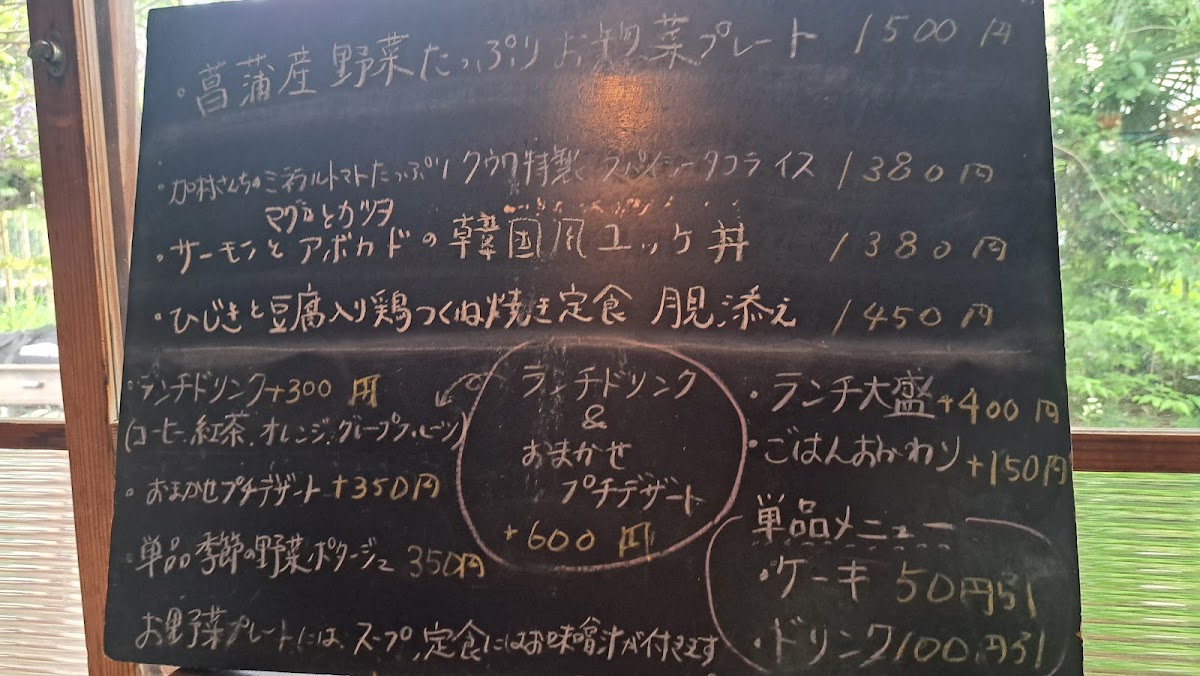 ・菖蒲産野菜たっぷりお惣菜プレート 1500円
・加村さんちのミネラルトマトたっぷりクウワ特製 スパイシータコライス 1380円
マグロとカツオ
・サーモンとアボカドの韓国風ユッケ丼 1380円
・ひじきと豆腐入り鶏つくね焼き定食 月見添え 1450円
・ランチドリンク+300円
(コーヒー、紅茶、オレンジ、グレープフルーツ)
・おまかせプチデザート+350円
・単品 季節の野菜ポタージュ 350円
お野菜プレートには、スープ、定食にはお味噌汁が付きます
ランチドリンク
&
おまかせ
プチデザート
+600円
・ランチ大盛+400円
・ごはんおかわり+150円
単品メニュー
・ケーキ 50円引
・ドリンク100円引